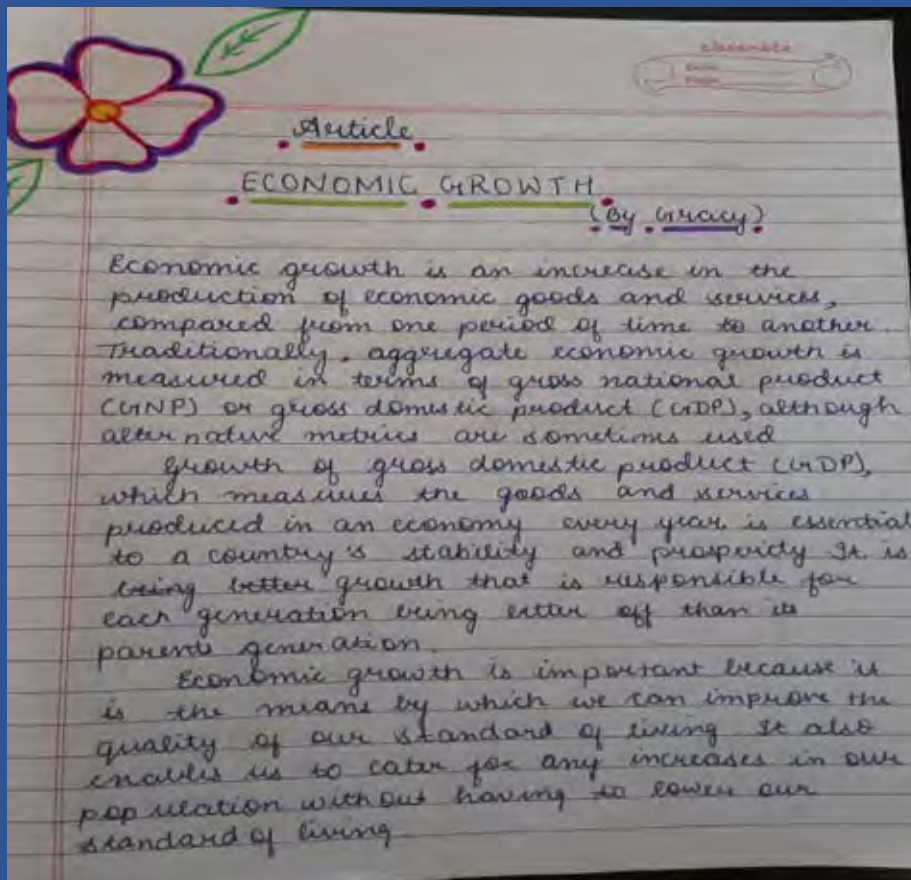 classmate
Date
Page
Article
ECONOMIC GROWTH
(By Gracy)
Economic growth is an increase in the
production of economic goods and services,
compared from one period of time to another.
Traditionally, aggregate economic growth is
measured in terms of gross national product
(GNP) or gross domestic product (GDP), although
alternative metrics are sometimes used
Growth of gross domestic product (GDP),
which measures the goods and services
produced in an economy every year, is essential
to a country's stability and prosperity It is
being better growth that is responsible for
each generation being etter off than its
parents generation.
Economic growth is important because it
is the means by which we can improve the
quality of our standard of living It also
enables us to cater for any increases in our
population without having to lower our
standard of living